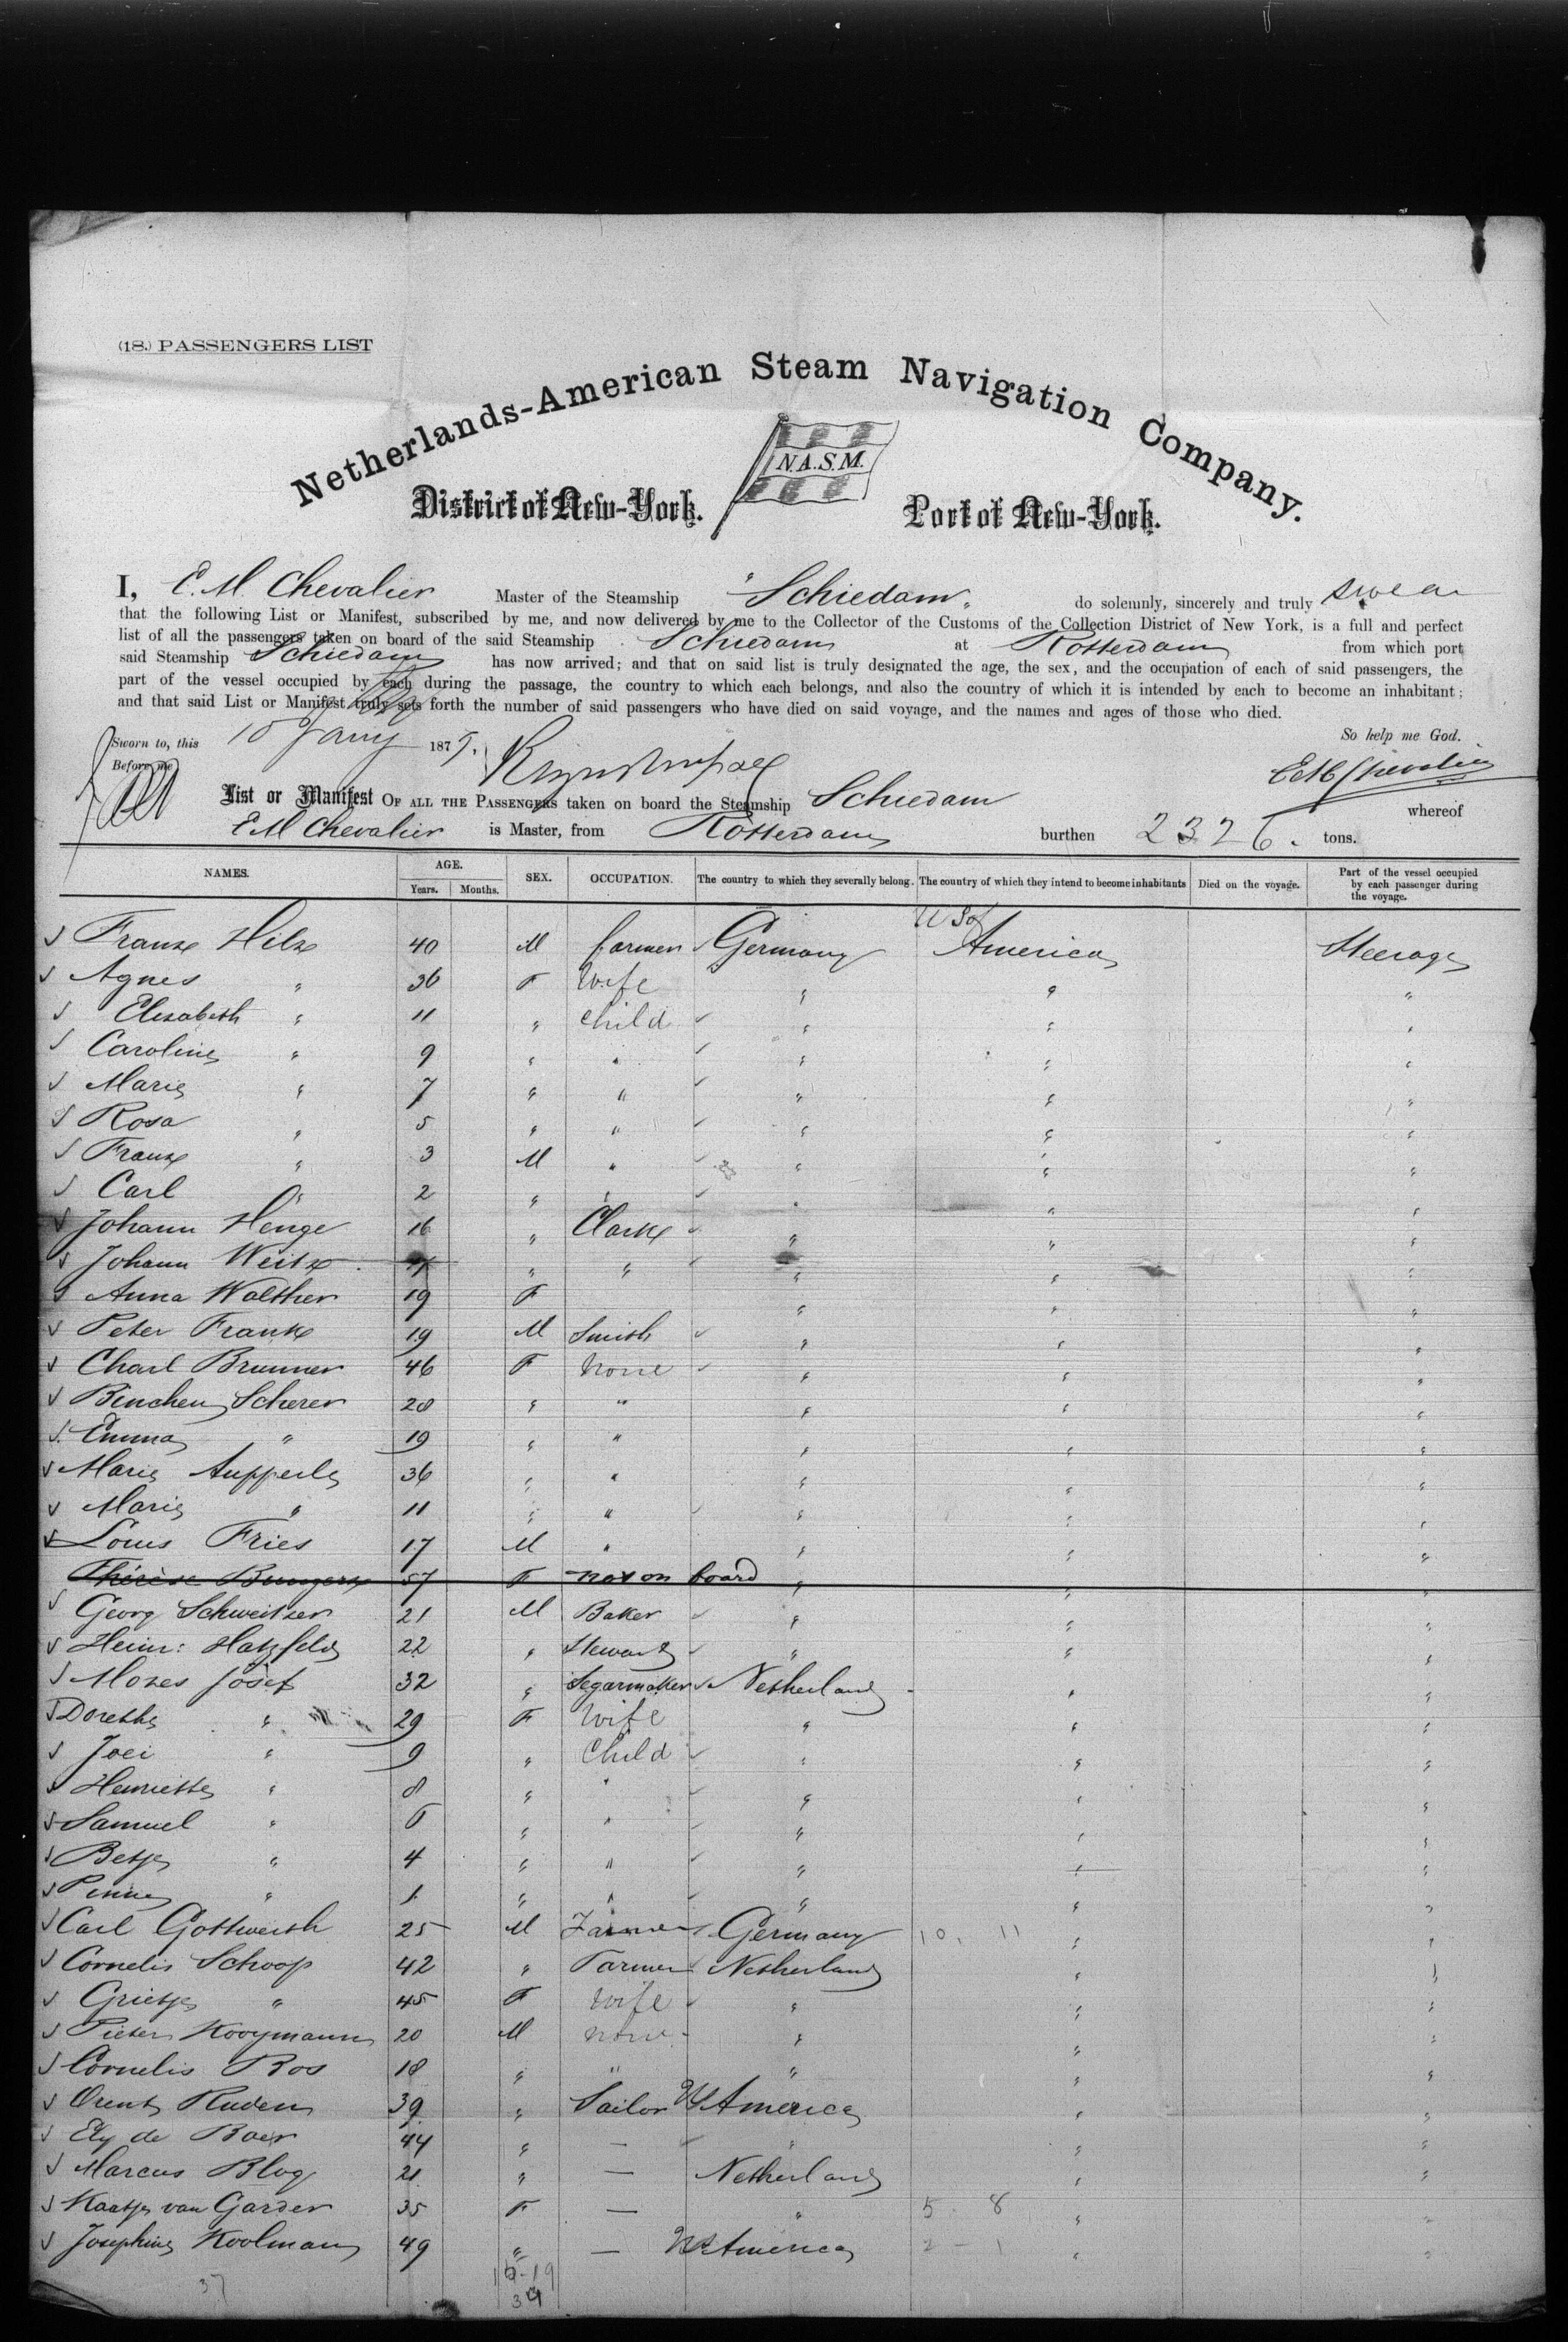 (18.) PASSENGERS LIST
Netherlands-American Steam Navigation Company.
N.A.S.M.
District of New-York. Port of New-York.
I, E. M. Chevalier Master of the Steamship "Schiedam" do solemnly, sincerely and truly swear
that the following List or Manifest, subscribed by me, and now delivered by me to the Collector of the Customs of the Collection District of New York, is a full and perfect
list of all the passengers taken on board of the said Steamship Schiedam at Rotterdam from which port
said Steamship Schiedam has now arrived; and that on said list is truly designated the age, the sex, and the occupation of each of said passengers, the
part of the vessel occupied by each during the passage, the country to which each belongs, and also the country of which it is intended by each to become an inhabitant;
and that said List or Manifest truly sets forth the number of said passengers who have died on said voyage, and the names and ages of those who died.
Sworn to, this 10 Jany 1879. So help me God.
Before me E M Chevalier
List or Manifest OF ALL THE PASSENGERS taken on board the Steamship Schiedam whereof
E M Chevalier is Master, from Rotterdam burthen 2326. tons.
NAMES. AGE. Years. Months. SEX. OCCUPATION. The country to which they severally belong. The country of which they intend to become inhabitants Died on the voyage. Part of the vessel occupied by each passenger during the voyage.
Franz Hilz 40 M farmer Germany US of America Steerage
Agnes " 36 F Wife " " "
Elisabeth " 11 " Child " " "
Caroline " 9 " " " " "
Marie " 7 " " " " "
Rosa " 5 " " " " "
Franz " 3 M " " " "
Carl " 2 " " " " "
Johann Henge 16 " Clark " " "
Johann Weitz " " " " "
Anna Walther 19 F " " "
Peter Frank 19 M Smith " " "
Charl Brunner 46 F None " " "
Binchen Scherer 20 " " " " "
Emma " 19 " " " " "
Marie Aupperle 36 " " " " "
Marie " 11 " " " " "
Louis Fries 17 M " " " "
Thérèse Bungerz 57 F not on board " " "
Georg Schweitzer 21 M Baker " " "
Heinr: Hatzfeld 22 " Steward " " "
Mozes Josef 32 " Segarmaker Netherland " "
Doreth " 29 F Wife " " "
Joei " 9 " Child " " "
Henriette " 8 " " " " "
Samuel " 6 " " " " "
Betje " 4 " " " " "
" 1 " " " " "
Carl Gottwerth 25 M Farmer Germany 10. 11 " "
Cornelis Schoop 42 " Farmer Netherland " "
Grietje " 45 F Wife " " "
Pieter Kooymann 20 M none " " "
Cornelis Bos 18 " " " " "
Ruden 39 " Sailor US America " "
Ely de Boer 44 " — " " "
Marcus Blog 21 " — Netherland " "
Kaatje van Garder 35 F — " 5 - 8 " "
Josephine Koolman 49 " — US America 2 - 1 " "
37
19
39